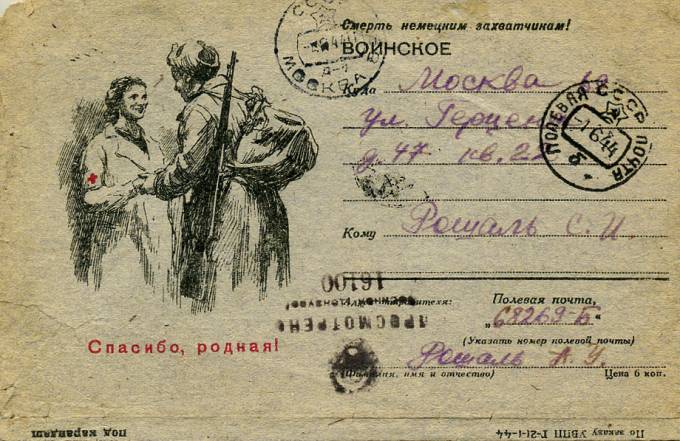 Смерть немецким захватчикам!
ВОИНСКОЕ
Куда Москва
ул. Герцена
д. 47 кв. 22
Кому Рошаль С. И.
Полевая почта,
„68269-Б“
(Указать номер полевой почты)
Рошаль
(Фамилия, имя и отчество) Цена 6 коп.
Спасибо, родная!
СССР
МОСКВА
ПОЛЕВАЯ ПОЧТА
СССР
-7 6 44
ПРОСМОТРЕНО
16100
Под карандаш
По заказу УВПП Г-21-1-44